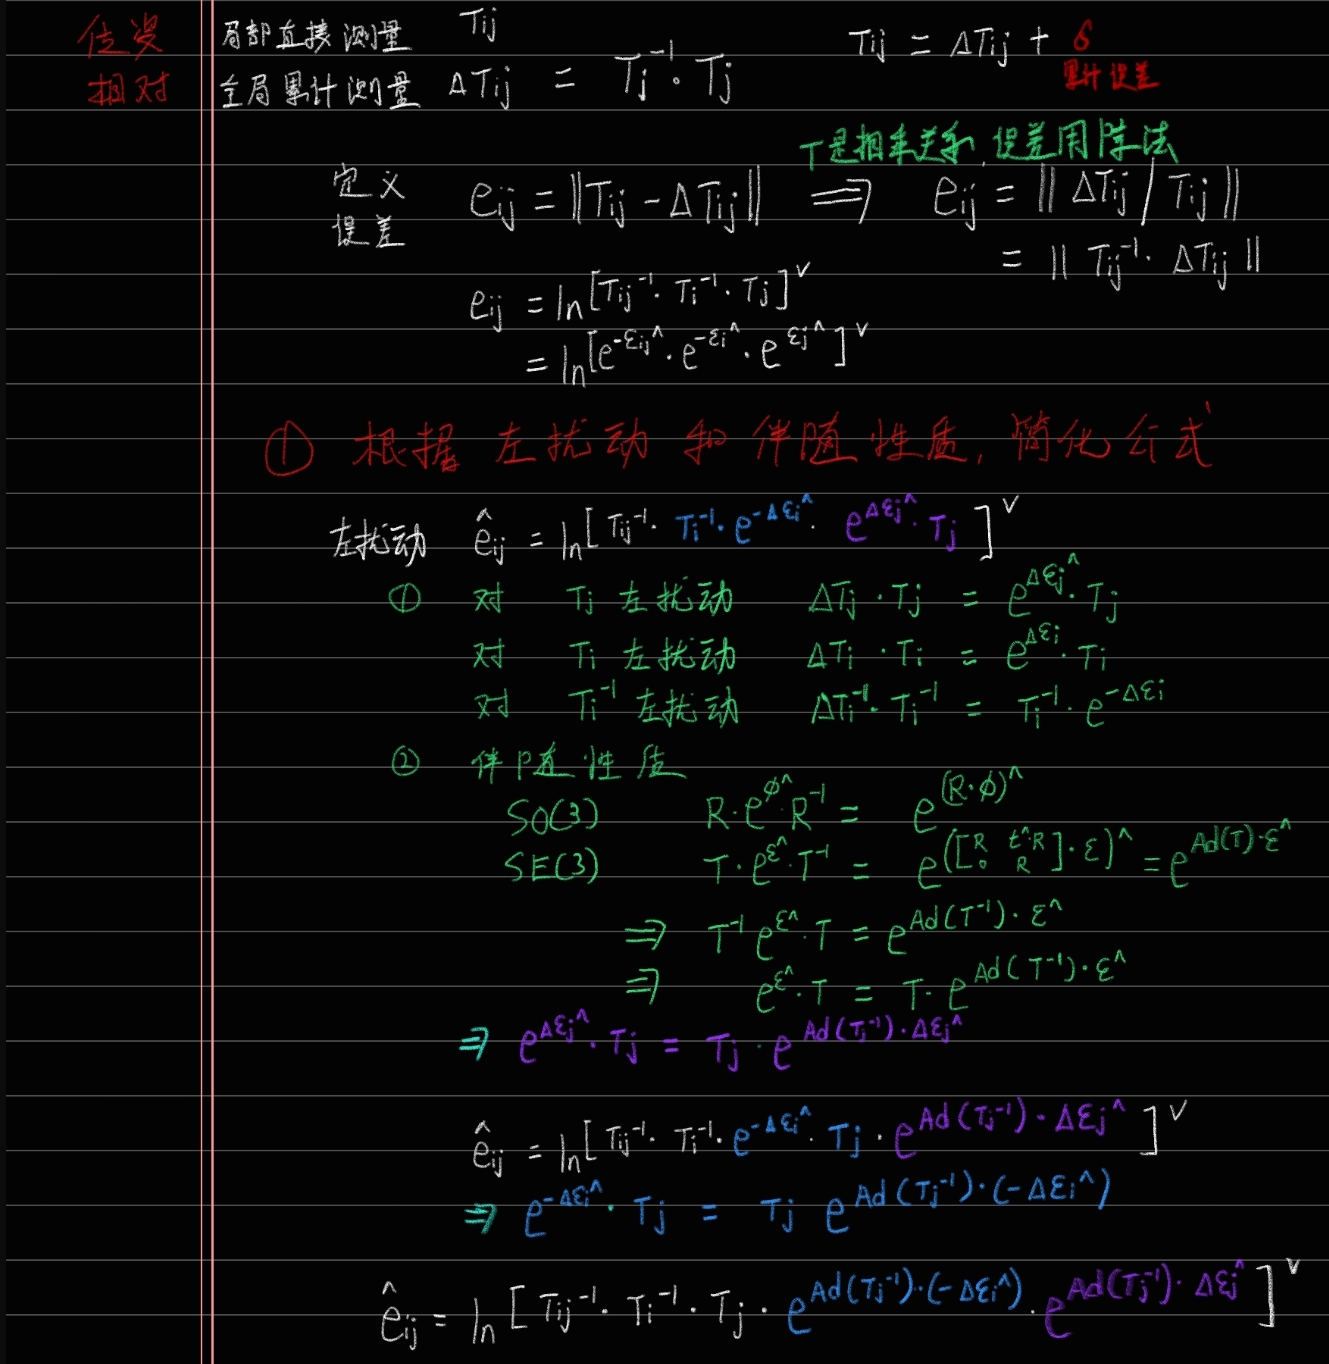 位姿 局部直接测量 Tij Tij = ΔTij + δ
相对 全局累计测量 ΔTij = Ti⁻¹ · Tj 累计误差
T是相乘关系,误差用除法
定义 eij = ||Tij - ΔTij|| ⟹ eij = || ΔTij / Tij ||
误差 = || Tij⁻¹ · ΔTij ||
eij = ln[Tij⁻¹ · Ti⁻¹ · Tj]ᵛ
= ln[e^(-εij^) · e^(-εi^) · e^(εj^)]ᵛ
① 根据 左扰动 和 伴随性质, 简化公式
左扰动 êij = ln[Tij⁻¹ · Ti⁻¹ · e^(-Δεi^) · e^(Δεj^) · Tj]ᵛ
① 对 Tj 左扰动 ΔTj · Tj = e^(Δεj^) · Tj
对 Ti 左扰动 ΔTi · Ti = e^(Δεi) · Ti
对 Ti⁻¹ 左扰动 ΔTi⁻¹ · Ti⁻¹ = Ti⁻¹ · e^(-Δεi)
② 伴随性质
SO(3) R · e^(φ^) · R⁻¹ = e^((R·φ)^)
SE(3) T · e^(ε^) · T⁻¹ = e^(([R t^R; 0 R] · ε)^) = e^(Ad(T)·ε^)
⟹ T⁻¹ e^(ε^) · T = e^(Ad(T⁻¹) · ε^)
⟹ e^(ε^) · T = T · e^(Ad(T⁻¹) · ε^)
⟹ e^(Δεj^) · Tj = Tj · e^(Ad(Tj⁻¹) · Δεj^)
êij = ln[Tij⁻¹ · Ti⁻¹ · e^(-Δεi^) · Tj · e^(Ad(Tj⁻¹) · Δεj^)]ᵛ
⟹ e^(-Δεi^) · Tj = Tj e^(Ad(Tj⁻¹) · (-Δεi^))
êij = ln[Tij⁻¹ · Ti⁻¹ · Tj · e^(Ad(Tj⁻¹) · (-Δεi^)) · e^(Ad(Tj⁻¹) · Δεj^)]ᵛ